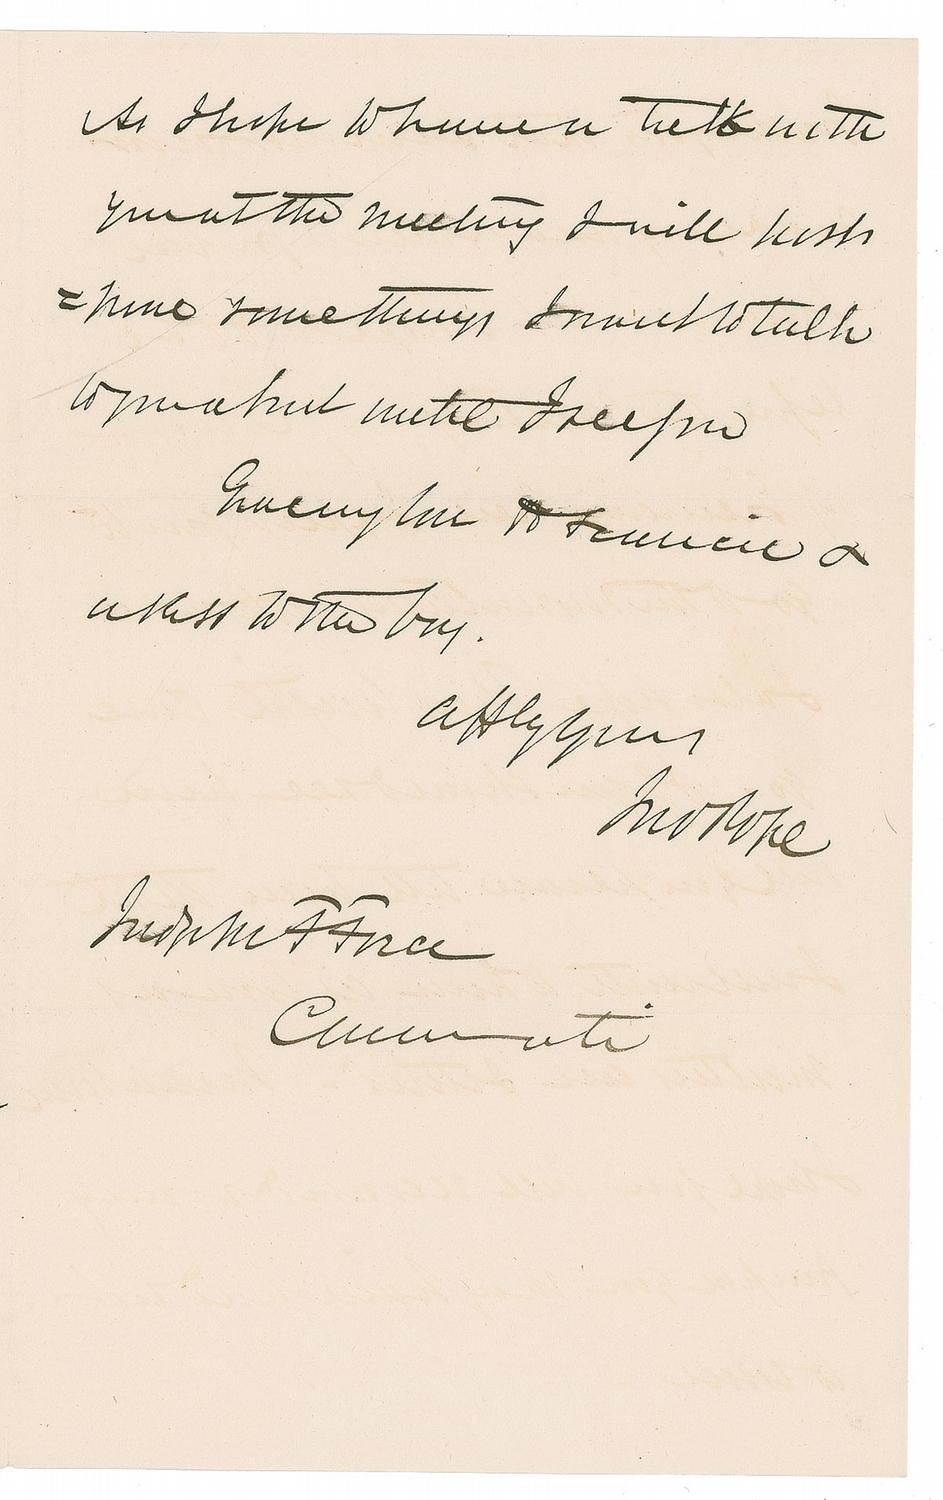 As I hope to have a talk with
you at the meeting I will post
=pone some things I want to talk
to you about until I see you
Give my love to Fannie &
a kiss to the boy.
Affly yours
Jno Pope
Judge M F Force
Cincinnati